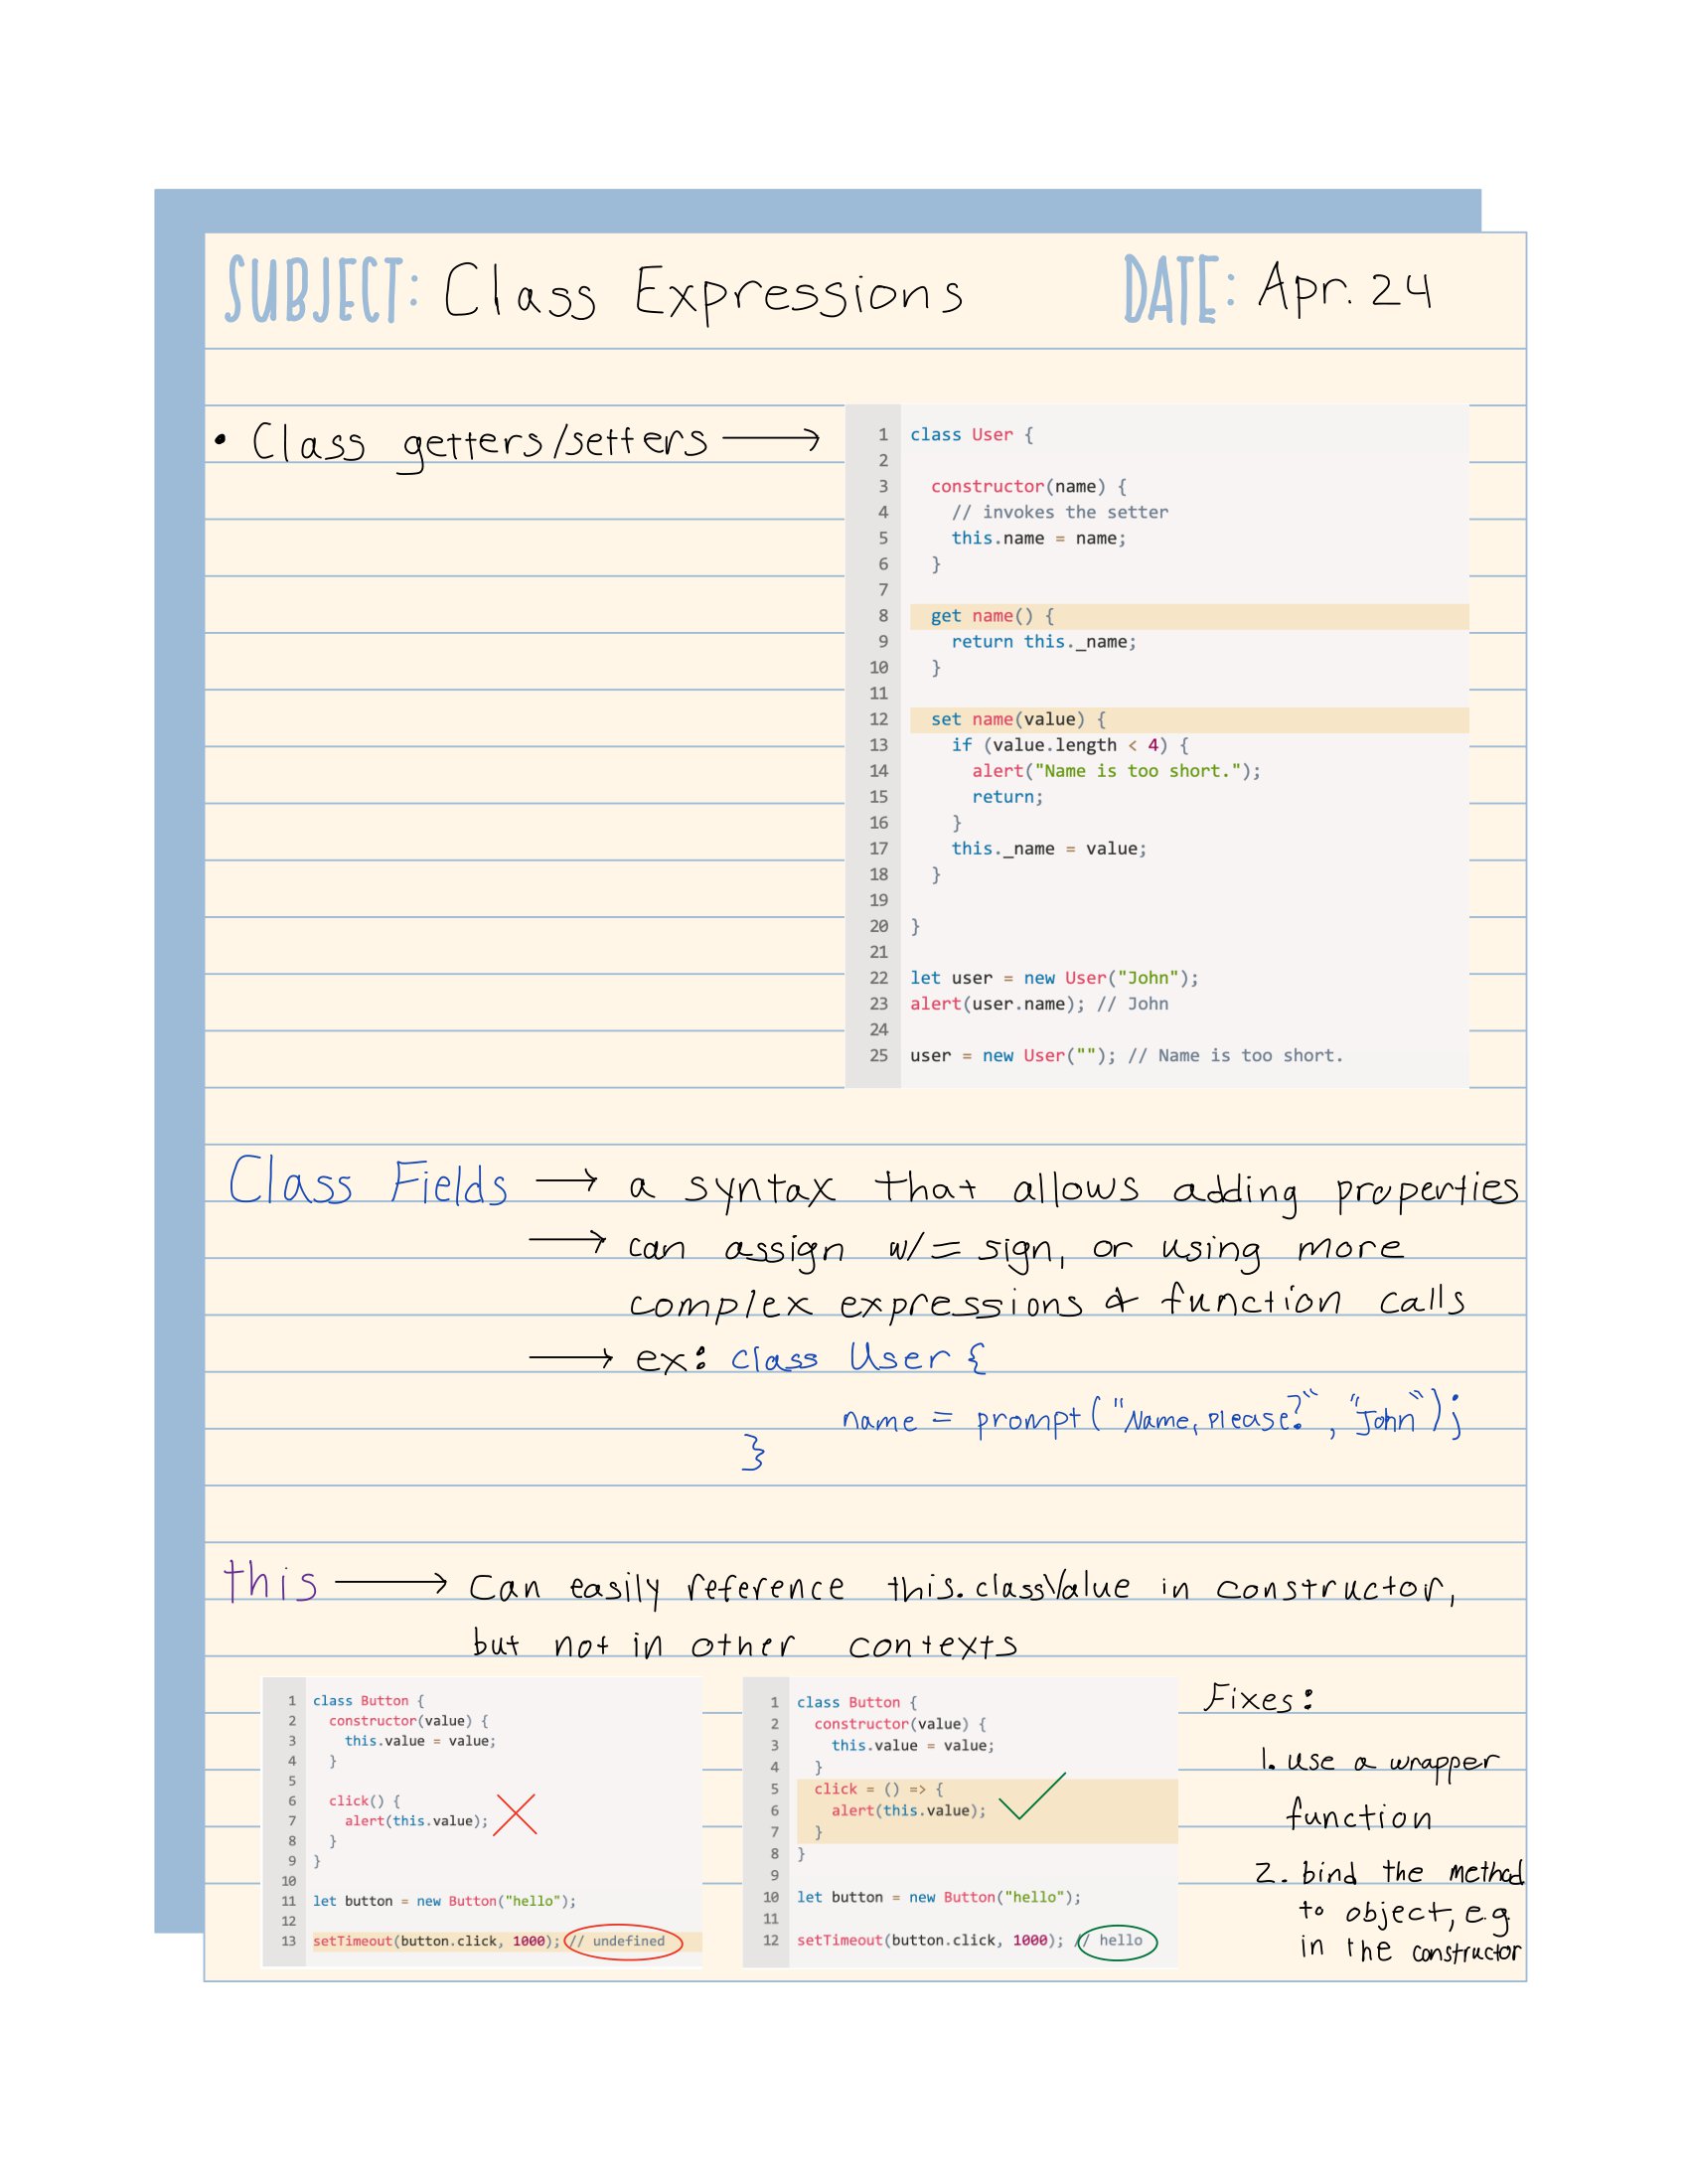 SUBJECT: Class Expressions DATE: Apr. 24
• Class getters/setters →
1 class User {
2
3 constructor(name) {
4 // invokes the setter
5 this.name = name;
6 }
7
8 get name() {
9 return this._name;
10 }
11
12 set name(value) {
13 if (value.length < 4) {
14 alert("Name is too short.");
15 return;
16 }
17 this._name = value;
18 }
19
20 }
21
22 let user = new User("John");
23 alert(user.name); // John
24
25 user = new User(""); // Name is too short.
Class Fields → a syntax that allows adding properties
→ can assign w/ = sign, or using more
complex expressions & function calls
→ ex: class User {
name = prompt("Name, please?", "John");
}
this → Can easily reference this.classValue in constructor,
but not in other contexts
1 class Button {
2 constructor(value) {
3 this.value = value;
4 }
5
6 click() {
7 alert(this.value);
8 }
9 }
10
11 let button = new Button("hello");
12
13 setTimeout(button.click, 1000); // undefined
1 class Button {
2 constructor(value) {
3 this.value = value;
4 }
5 click = () => {
6 alert(this.value);
7 }
8 }
9
10 let button = new Button("hello");
11
12 setTimeout(button.click, 1000); // hello
Fixes:
1. use a wrapper
function
2. bind the method
to object, e.g.
in the constructor